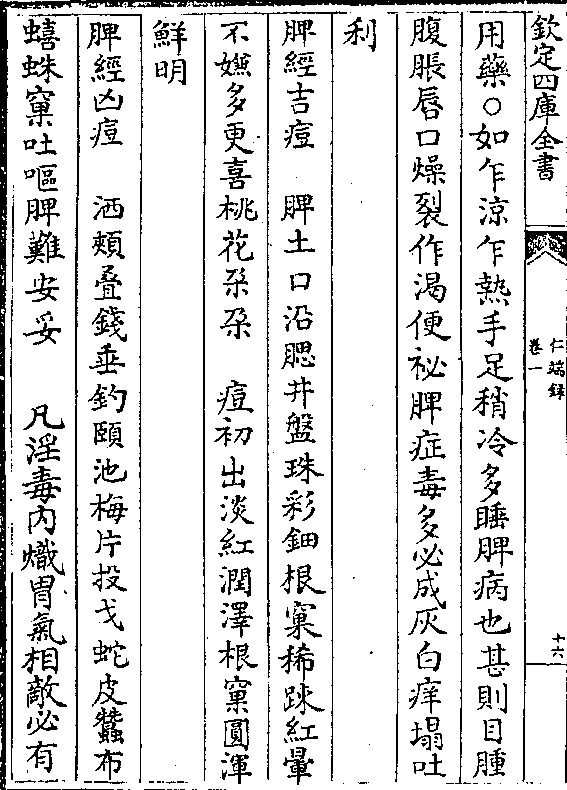 欽定四庫全書
仁端録
卷一
十六
用藥○如乍涼乍熱手足稍冷多睡脾病也甚則目腫
腹脹唇口燥裂作渴便祕脾症毒多必成灰白痒塌吐
利
脾經吉痘　脾土口沿腮井盤珠彩鈿根窠稀踈紅暈
不嫌多更喜桃花朶朶　痘初出淡紅潤澤根窠圓渾
鮮明
脾經凶痘　洒頰叠錢垂釣頤池梅片投戈蛇皮蠶布
蟢蛛窠吐嘔脾難安妥　凡淫毒内熾胃氣相敵必有